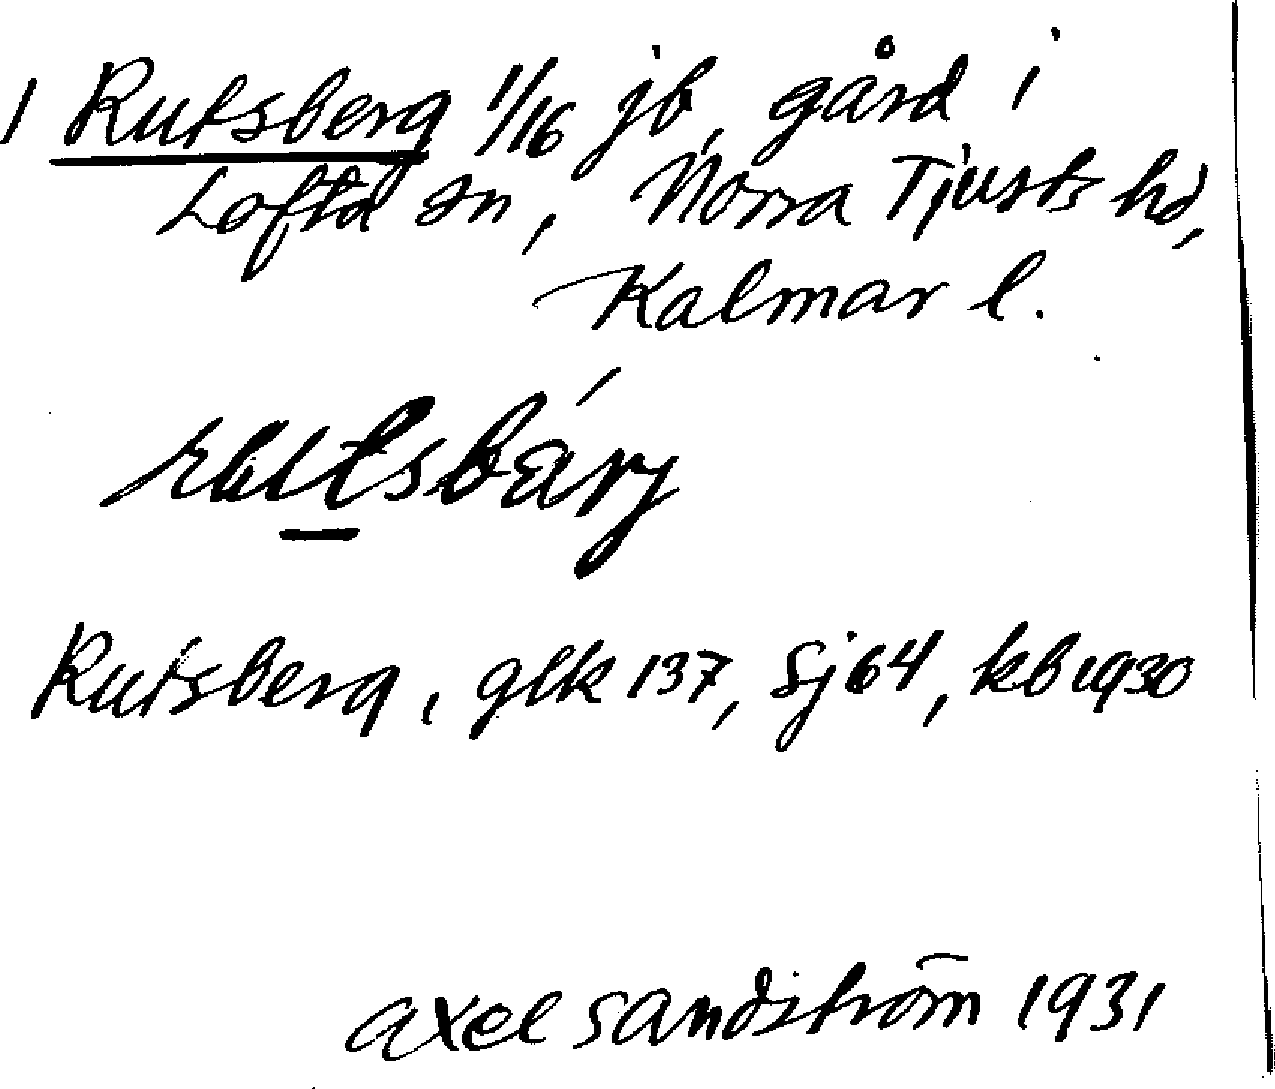 1 Rutsberg 1/16 jb, gård i
Lofta sn, Norra Tjusts hd,
Kalmar l.
Rutsberg, glk 137, Sj 64, kb 1930
Axel Sandström 1931